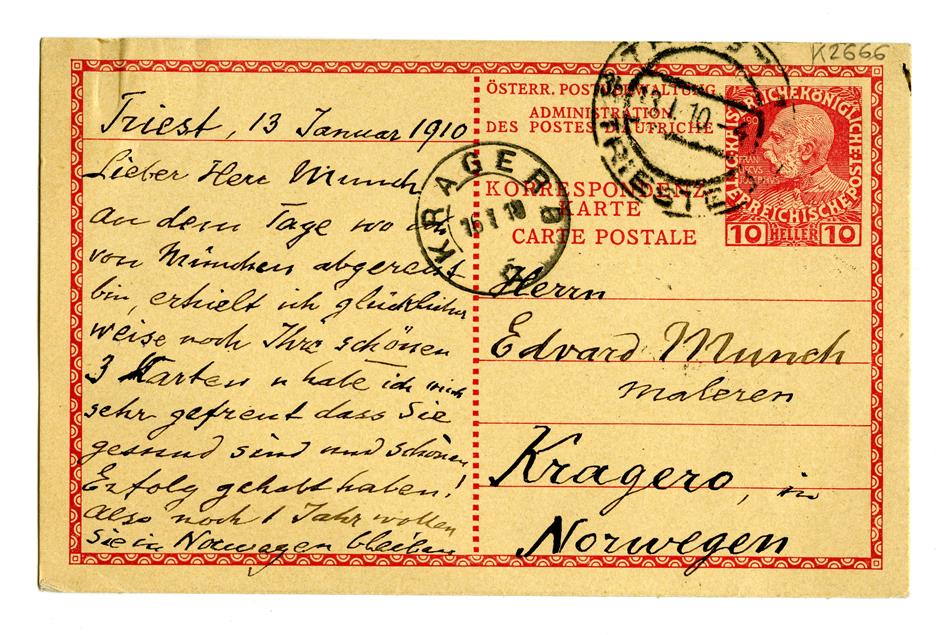 K2666
Triest, 13 Januar 1910
Lieber Herr Munch
an dem Tage wo ich
von München abgereist
bin, erhielt ich glücklicher
weise noch Ihre schönen
3 Karten u habe ich mich
sehr gefreut dass Sie
gesund sind und schönen
Erfolg gehabt haben!
Also noch 1 Jahr wollen
Sie in Norwegen bleiben
ÖSTERR. POSTVERWALTUNG
ADMINISTRATION
DES POSTES D'AUTRICHE
KORRESPONDENZ-
KARTE
CARTE POSTALE
KAISERLICHKÖNIGLICHE
ÖSTERREICHISCHE POST
10 HELLER 10
TRIESTE
13.I.10
KRAGERØ
15 I 10
Herrn
Edvard Munch
maleren
Kragerø, in
Norwegen